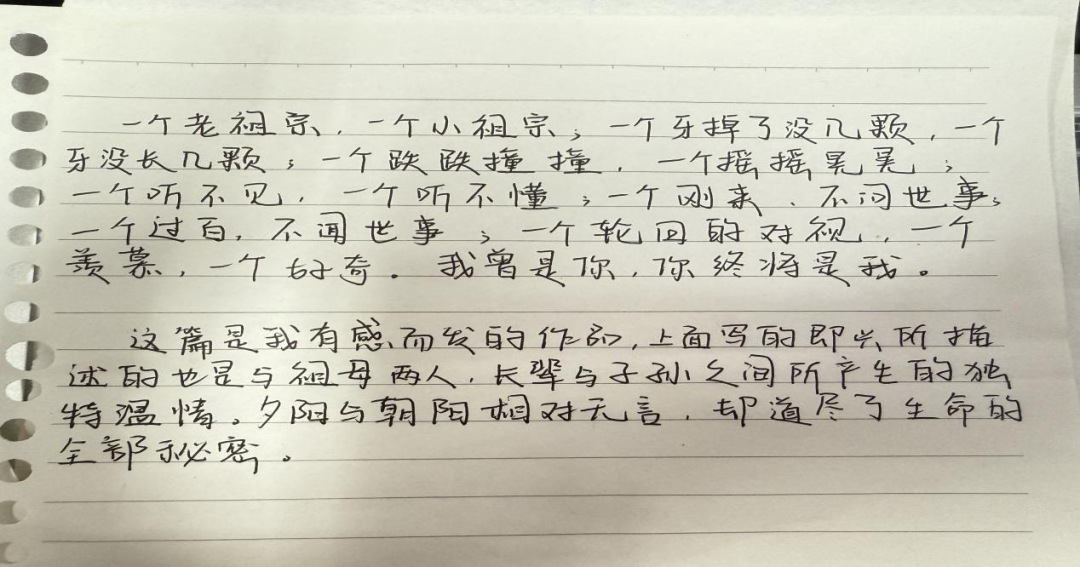 一个老祖宗，一个小祖宗；一个牙掉了没几颗，一个
牙没长几颗；一个跌跌撞撞，一个摇摇晃晃；
一个听不见，一个听不懂；一个刚来、不问世事；
一个过百，不闻世事；一个轮回的对视，一个
羡慕，一个好奇．我曾是你，你终将是我。
这篇是我有感而发的作品，上面写的即兴所描
述的也是与祖母两人，长辈与子孙之间所产生的独
特温情。夕阳与朝阳相对无言，却道尽了生命的
全部秘密。